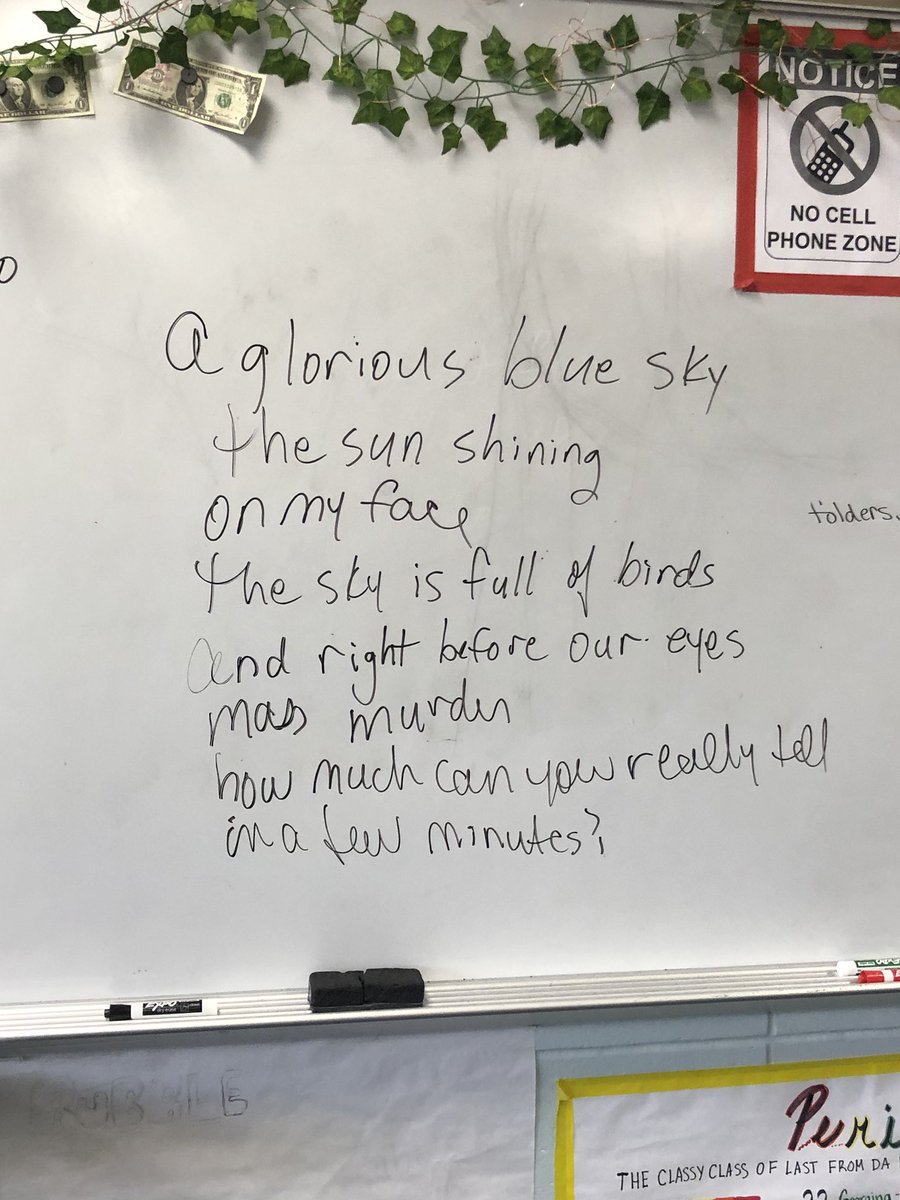 NOTICE
NO CELL
PHONE ZONE
a glorious blue sky
the sun shining
on my face
folders.
the sky is full of birds
and right before our eyes
mass murder
how much can you really tell
in a few minutes?
EXPO
Peri
THE CLASSY CLASS OF LAST FROM DA